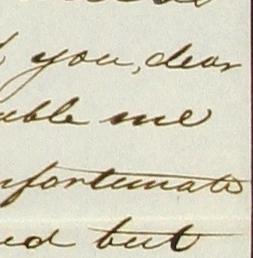 you, dear
uble me
nfortunate
ed but